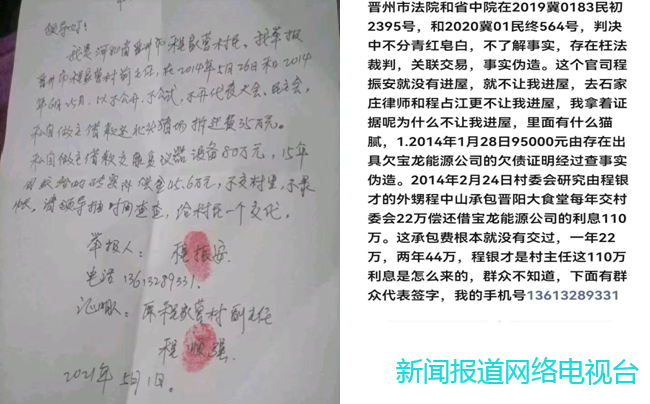 领导好:
我是河北省晋州市程家营村民。我举报
晋州市程家营村前主任,在2014年5月26日和2014
年6月25日,以不公开,不公示,不开代表大会,
私自做主借款 拆迁费35万元。
私自做主借款交 仪器设备80万元,15年
45.6万元,不交村里,不
请领导抽时间查查,给村民一个交代。
举报人: 程振安
电话13613289331
证明人: 原程家营村副主任
程顺强
2021年5月1日。
晋州市法院和省中院在2019冀0183民初
2395号,和2020冀01民终564号,判决
中不分青红皂白,不了解事实,存在枉法
裁判,关联交易,事实伪造。这个官司程
振安就没有进屋,就不让我进屋,去石家
庄律师和程占江更不让我进屋,我拿着证
据呢为什么不让我进屋,里面有什么猫
腻,1.2014年1月28日95000元由存在出
具欠宝龙能源公司的欠债证明经过查事实
伪造。2014年2月24日村委会研究由程银
才的外甥程中山承包晋阳大食堂每年交村
委会22万偿还借宝龙能源公司的利息110
万。这承包费根本就没有交过,一年22
万,两年44万,程银才是村主任这110万
利息是怎么来的,群众不知道,下面有群
众代表签字,我的手机号13613289331
新闻报道网络电视台